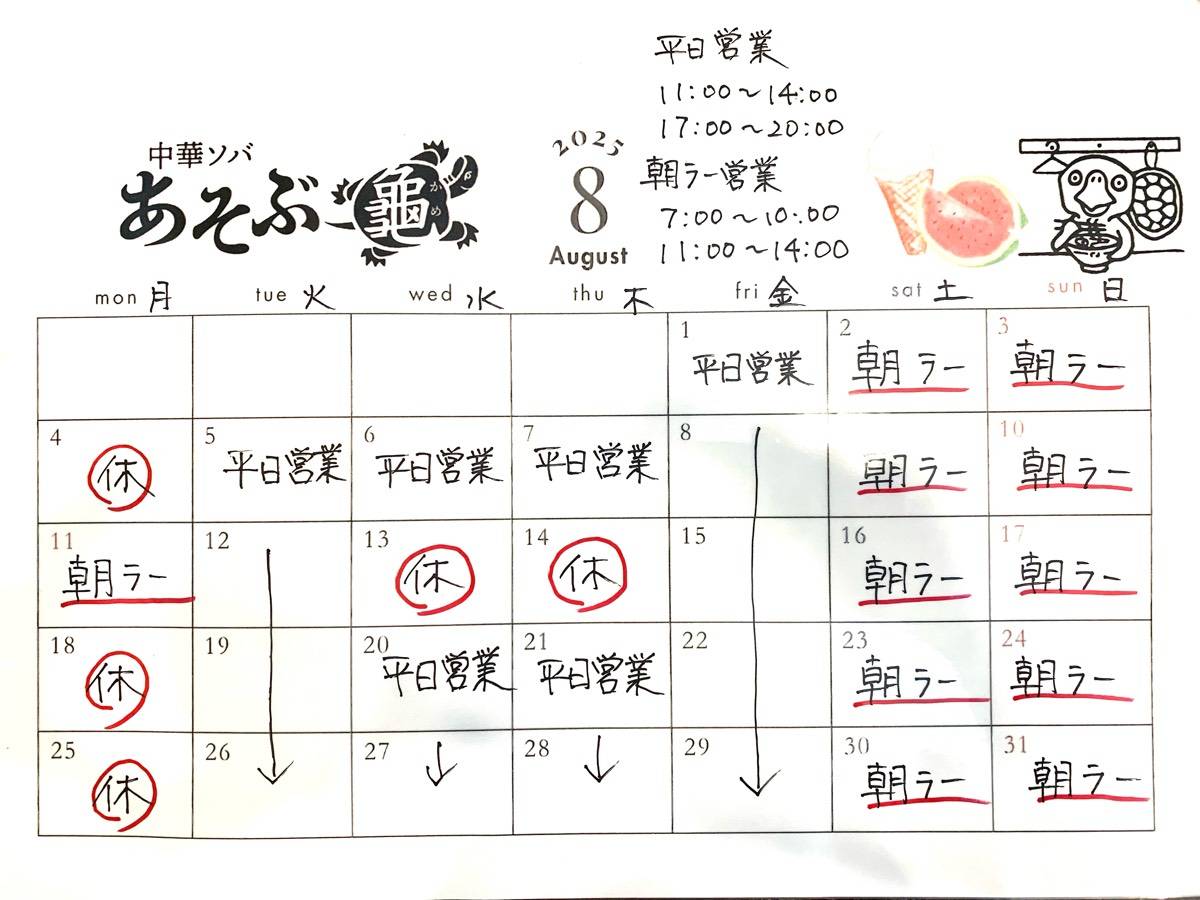 平日営業
11:00〜14:00
17:00〜20:00
朝ラー営業
7:00〜10:00
11:00〜14:00
中華ソバ
あそぶ龜
かめ
2025
8
August
mon 月 tue 火 wed 水 thu 木 fri 金 sat 土 sun 日
1 2 3
平日営業 朝ラー 朝ラー
4 5 6 7 8 10
休 平日営業 平日営業 平日営業 朝ラー 朝ラー
11 12 13 14 15 16 17
朝ラー 休 休 朝ラー 朝ラー
18 19 20 21 22 23 24
休 平日営業 平日営業 朝ラー 朝ラー
25 26 27 28 29 30 31
休 朝ラー 朝ラー